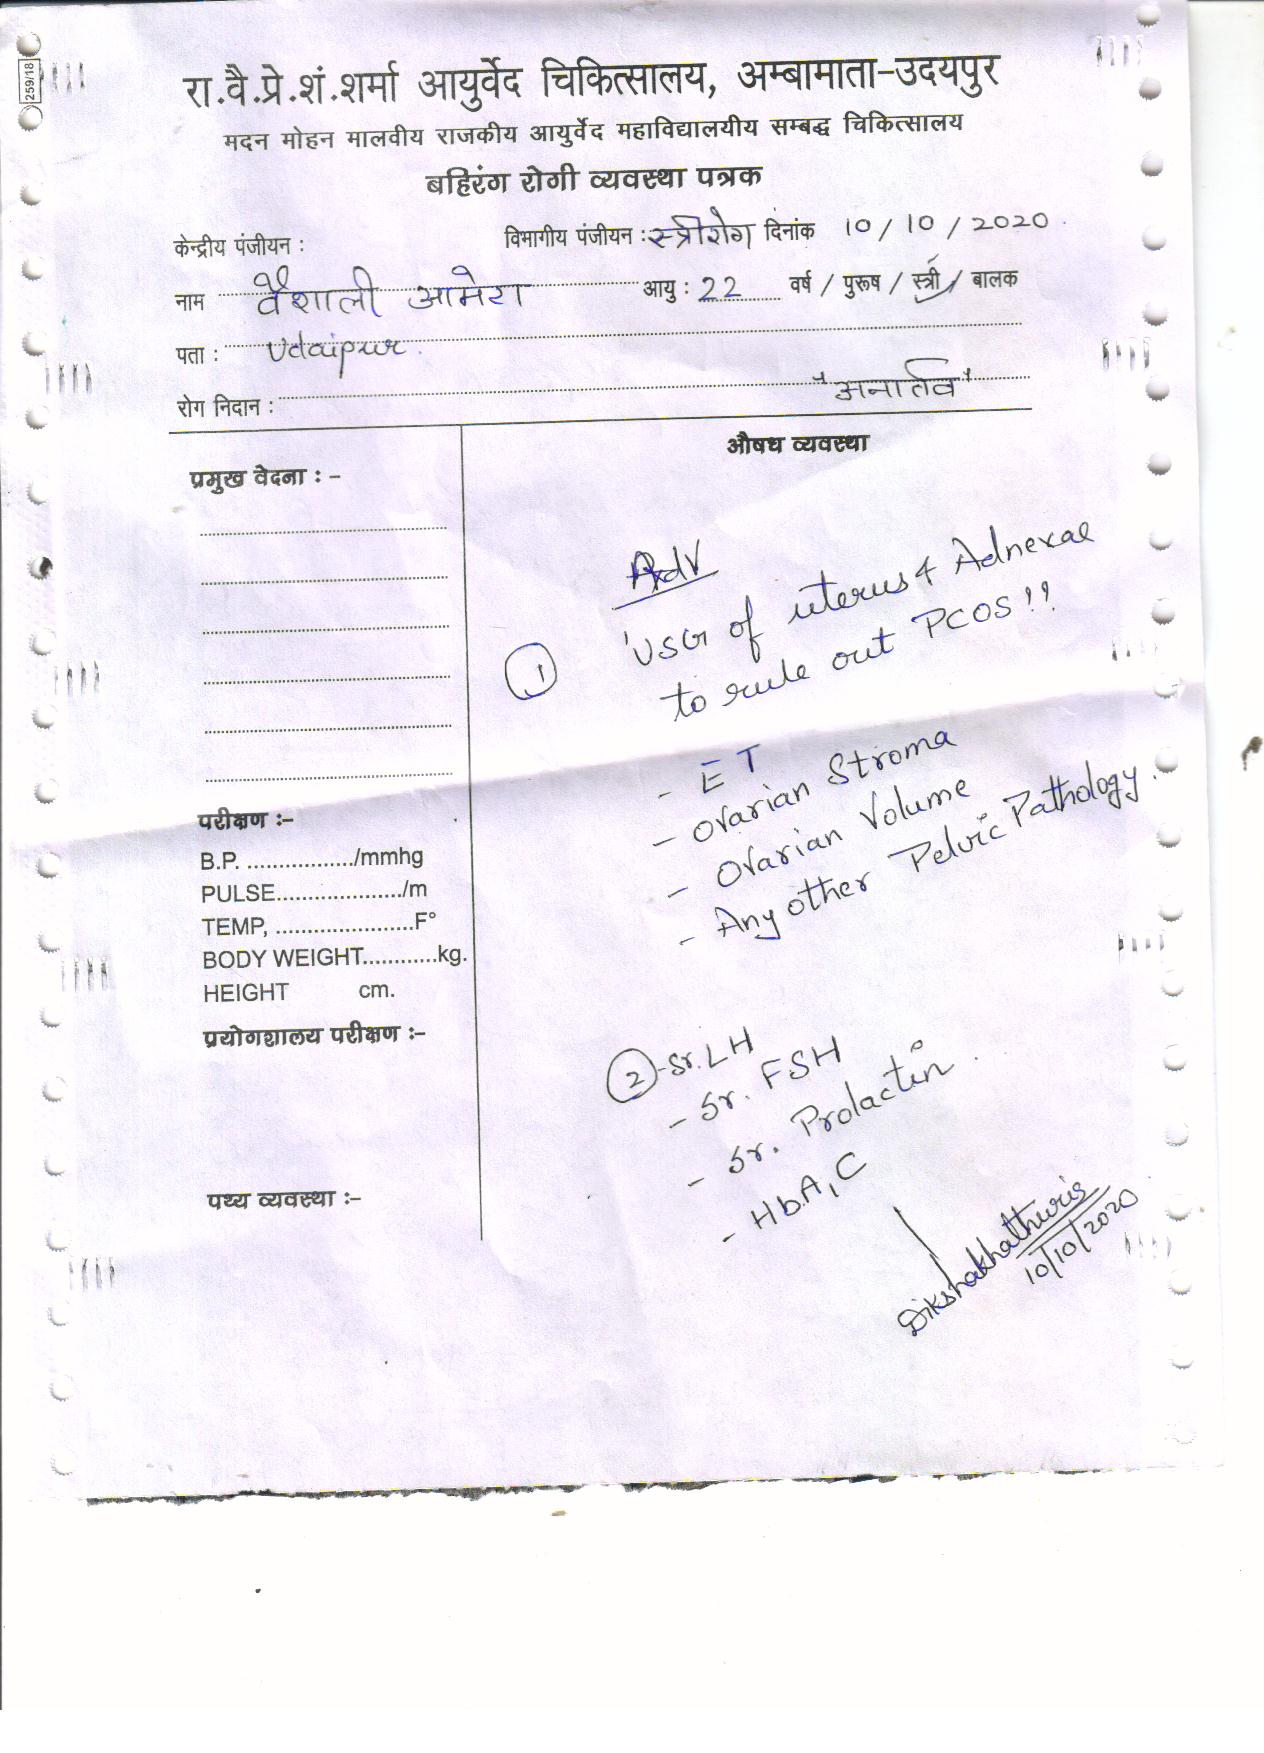 259/18
रा.वै.प्रे.शं.शर्मा आयुर्वेद चिकित्सालय, अम्बामाता-उदयपुर
मदन मोहन मालवीय राजकीय आयुर्वेद महाविद्यालयीय सम्बद्ध चिकित्सालय
बहिरंग रोगी व्यवस्था पत्रक
केन्द्रीय पंजीयन : विभागीय पंजीयन : स्त्रीरोग दिनांक 10/10/2020
नाम वैशाली आमेटा आयु : 22 वर्ष / पुरूष / स्त्री / बालक
पता : Udaipur.
रोग निदान : "अनार्तव"
प्रमुख वेदना : -
परीक्षण :-
B.P. ................/mmhg
PULSE..................../m
TEMP, ......................F°
BODY WEIGHT............kg.
HEIGHT cm.
प्रयोगशालय परीक्षण :-
पथ्य व्यवस्था :-
औषध व्यवस्था
Adv
① USG of uterus & Adnexae
to rule out PCOS!!
- ET
- Ovarian Stroma
- Ovarian Volume
- Any other Pelvic Pathology.
② - Sr. LH
- Sr. FSH
- Sr. Prolactin.
- HbA1C
10/10/2020